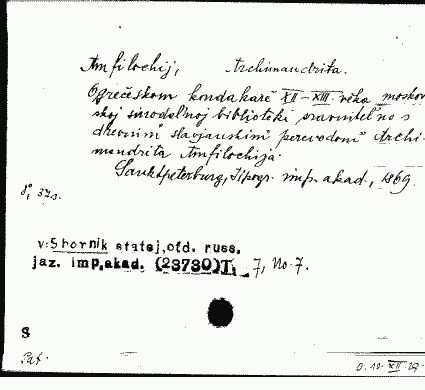 Amfilochij, Archimandrita.
O grečeskom kondakarě XII-XIII věka moskov
skoj sinodal'noj biblioteki sravnitel'no s
drevnim slavjanskim perevodom Archi-
mandrita Amfilochija.
Sanktpeterburg, Tipogr. imp. akad., 1869.
8°, 37 s.
v:Sbornik statej,otd. russ.
jaz. imp.akad. (23730)T. 7, No. 7.
S
0. 10. XII. 29.